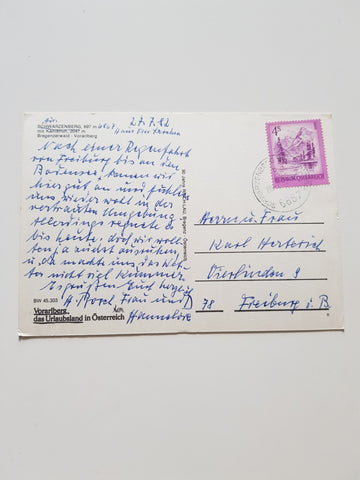 SCHWARZENBERG, 697 m
mit Kanisfluh, 2047 m
Bregenzerwald - Vorarlberg
27.7.82
Haus Vier Tannen
Nach einer Regenfahrt
von Freiburg bis an den
Bodensee, kamen wir
hier gut an und fühlen
uns wieder wohl in der
vertrauten Umgebung
Allerdings regnete es
bis heute, doch wir wollten
ja nicht
da machte uns das Wetter
nicht viel Kummer.
Es grüßen Euch herzlich
H. Frau und
Hannelore
BW 45.303
Vorarlberg,
das Urlaubsland in Österreich
4 S
REPUBLIK ÖSTERREICH
Herrn u. Frau
Karl Herterich
Vierlinden 9
78 Freiburg i. B